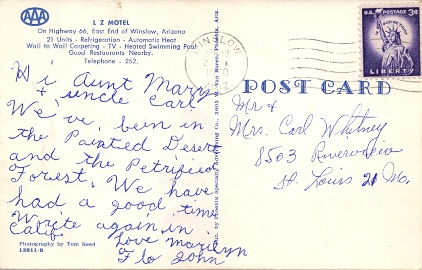 AAA
L Z MOTEL
On Highway 66, East End of Winslow, Arizona
21 Units - Refrigeration - Automatic Heat
Wall to Wall Carpeting - TV - Heated Swimming Pool
Good Restaurants Nearby.
Telephone - 252.
Hi Aunt Mary
+ uncle Carl
We've, been in
the Painted Desert
and the Petrified
Forest. We have
had a good time
Write again in
Calif.
Love Marilyn
Flo John
Photography by Tom Reed
12811-B
WINSLOW
U.S. POSTAGE 3¢
IN GOD WE TRUST
LIBERTY
POST CARD
Mr &
Mrs. Carl Whitney
8503
St. Louis 21 Mo.